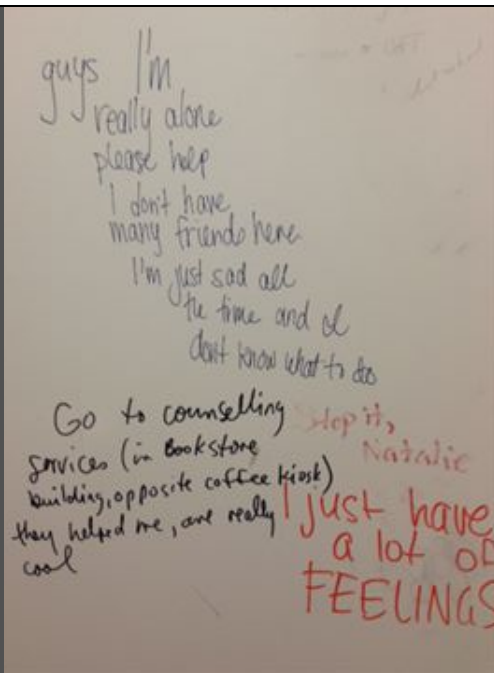 guys I'm
really alone
please help
I don't have
many friends here
I'm just sad all
the time and I
don't know what to do
Go to counselling
services (in Bookstore
building, opposite coffee kiosk)
they helped me, are really
cool
Stop it,
Natalie
I just have
a lot of
FEELINGS